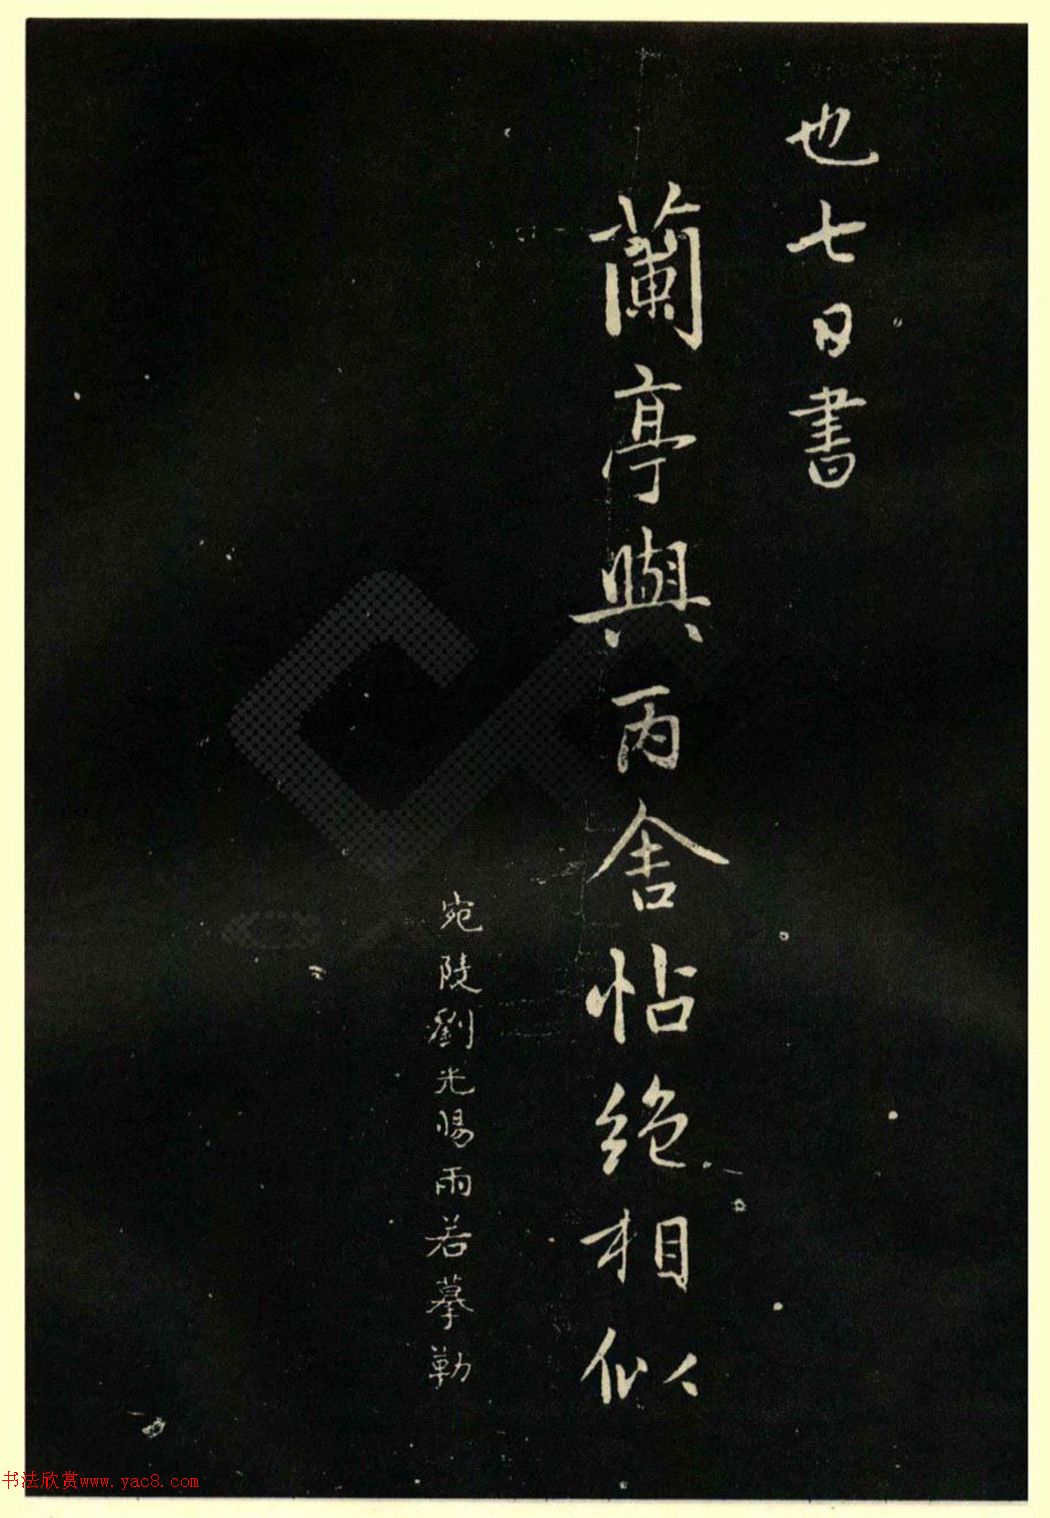 也七日書
蘭亭與丙舍帖絶相似
宛陵劉光暘雨若摹勒
书法欣赏www.yac8.com